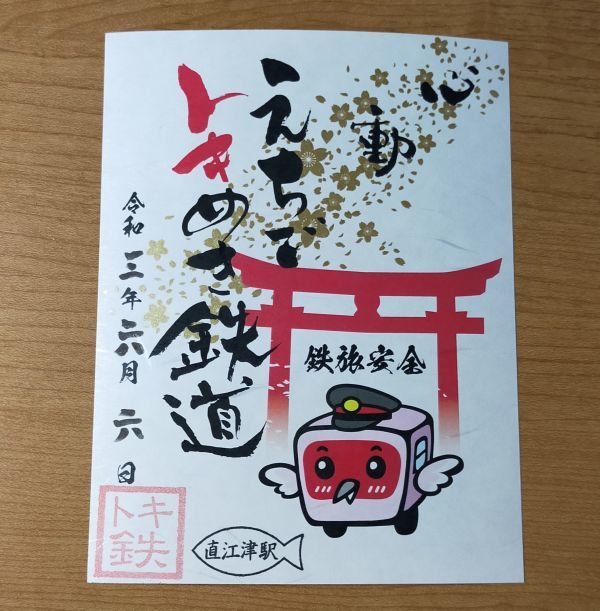 心動
えちご
トキめき鉄道
令和三年六月六日
鉄旅安全
トキ
鉄
直江津駅